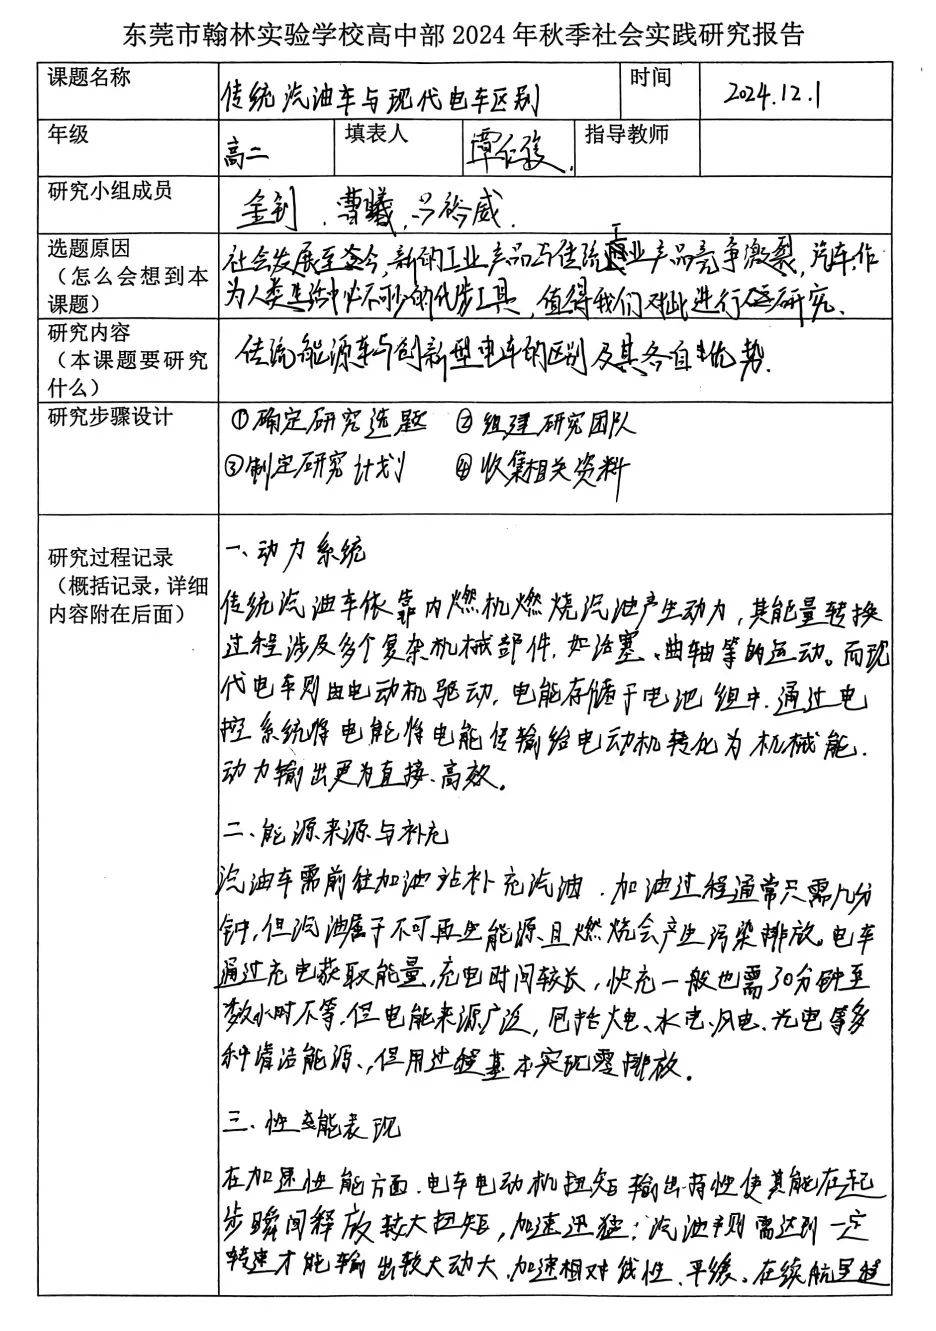 东莞市翰林实验学校高中部 2024 年秋季社会实践研究报告
课题名称 传统汽油车与现代电车区别 时间 2024.12.1
年级 高二 填表人 覃仁毅. 指导教师
研究小组成员 金钊、曹曦、吕裕威.
选题原因
（怎么会想到本
课题）
社会发展至今,新的工业产品与传统工业产品竞争激烈,汽车作
为人类生活中必不可少的代步工具,值得我们对此进行研究.
研究内容
（本课题要研究
什么）
传统能源车与创新型电车的区别及其各自优势.
研究步骤设计
①确定研究选题 ②组建研究团队
③制定研究计划 ④收集相关资料
研究过程记录
（概括记录，详细
内容附在后面）
一、动力系统
传统汽油车依靠内燃机燃烧汽油产生动力,其能量转换
过程涉及多个复杂机械部件,如活塞、曲轴等的运动。而现
代电车则由电动机驱动,电能存储于电池组中,通过电
控系统将电能将电能传输给电动机转化为机械能.
动力输出更为直接、高效。
二、能源来源与补充
汽油车需前往加油站补充汽油,加油过程通常只需几分
钟,但汽油属于不可再生能源,且燃烧会产生污染排放。电车
通过充电获取能量,充电时间较长,快充一般也需30分钟至
数小时不等,但电能来源广泛,包括火电、水电、风电、光电等多
种清洁能源、,使用过程基本实现零排放.
三、性能表现
在加速性能方面,电车电动机扭矩输出特性使其能在起
步瞬间释放较大扭矩,加速迅猛;汽油车则需达到一定
转速才能输出较大动力,加速相对线性、平缓。在续航里程